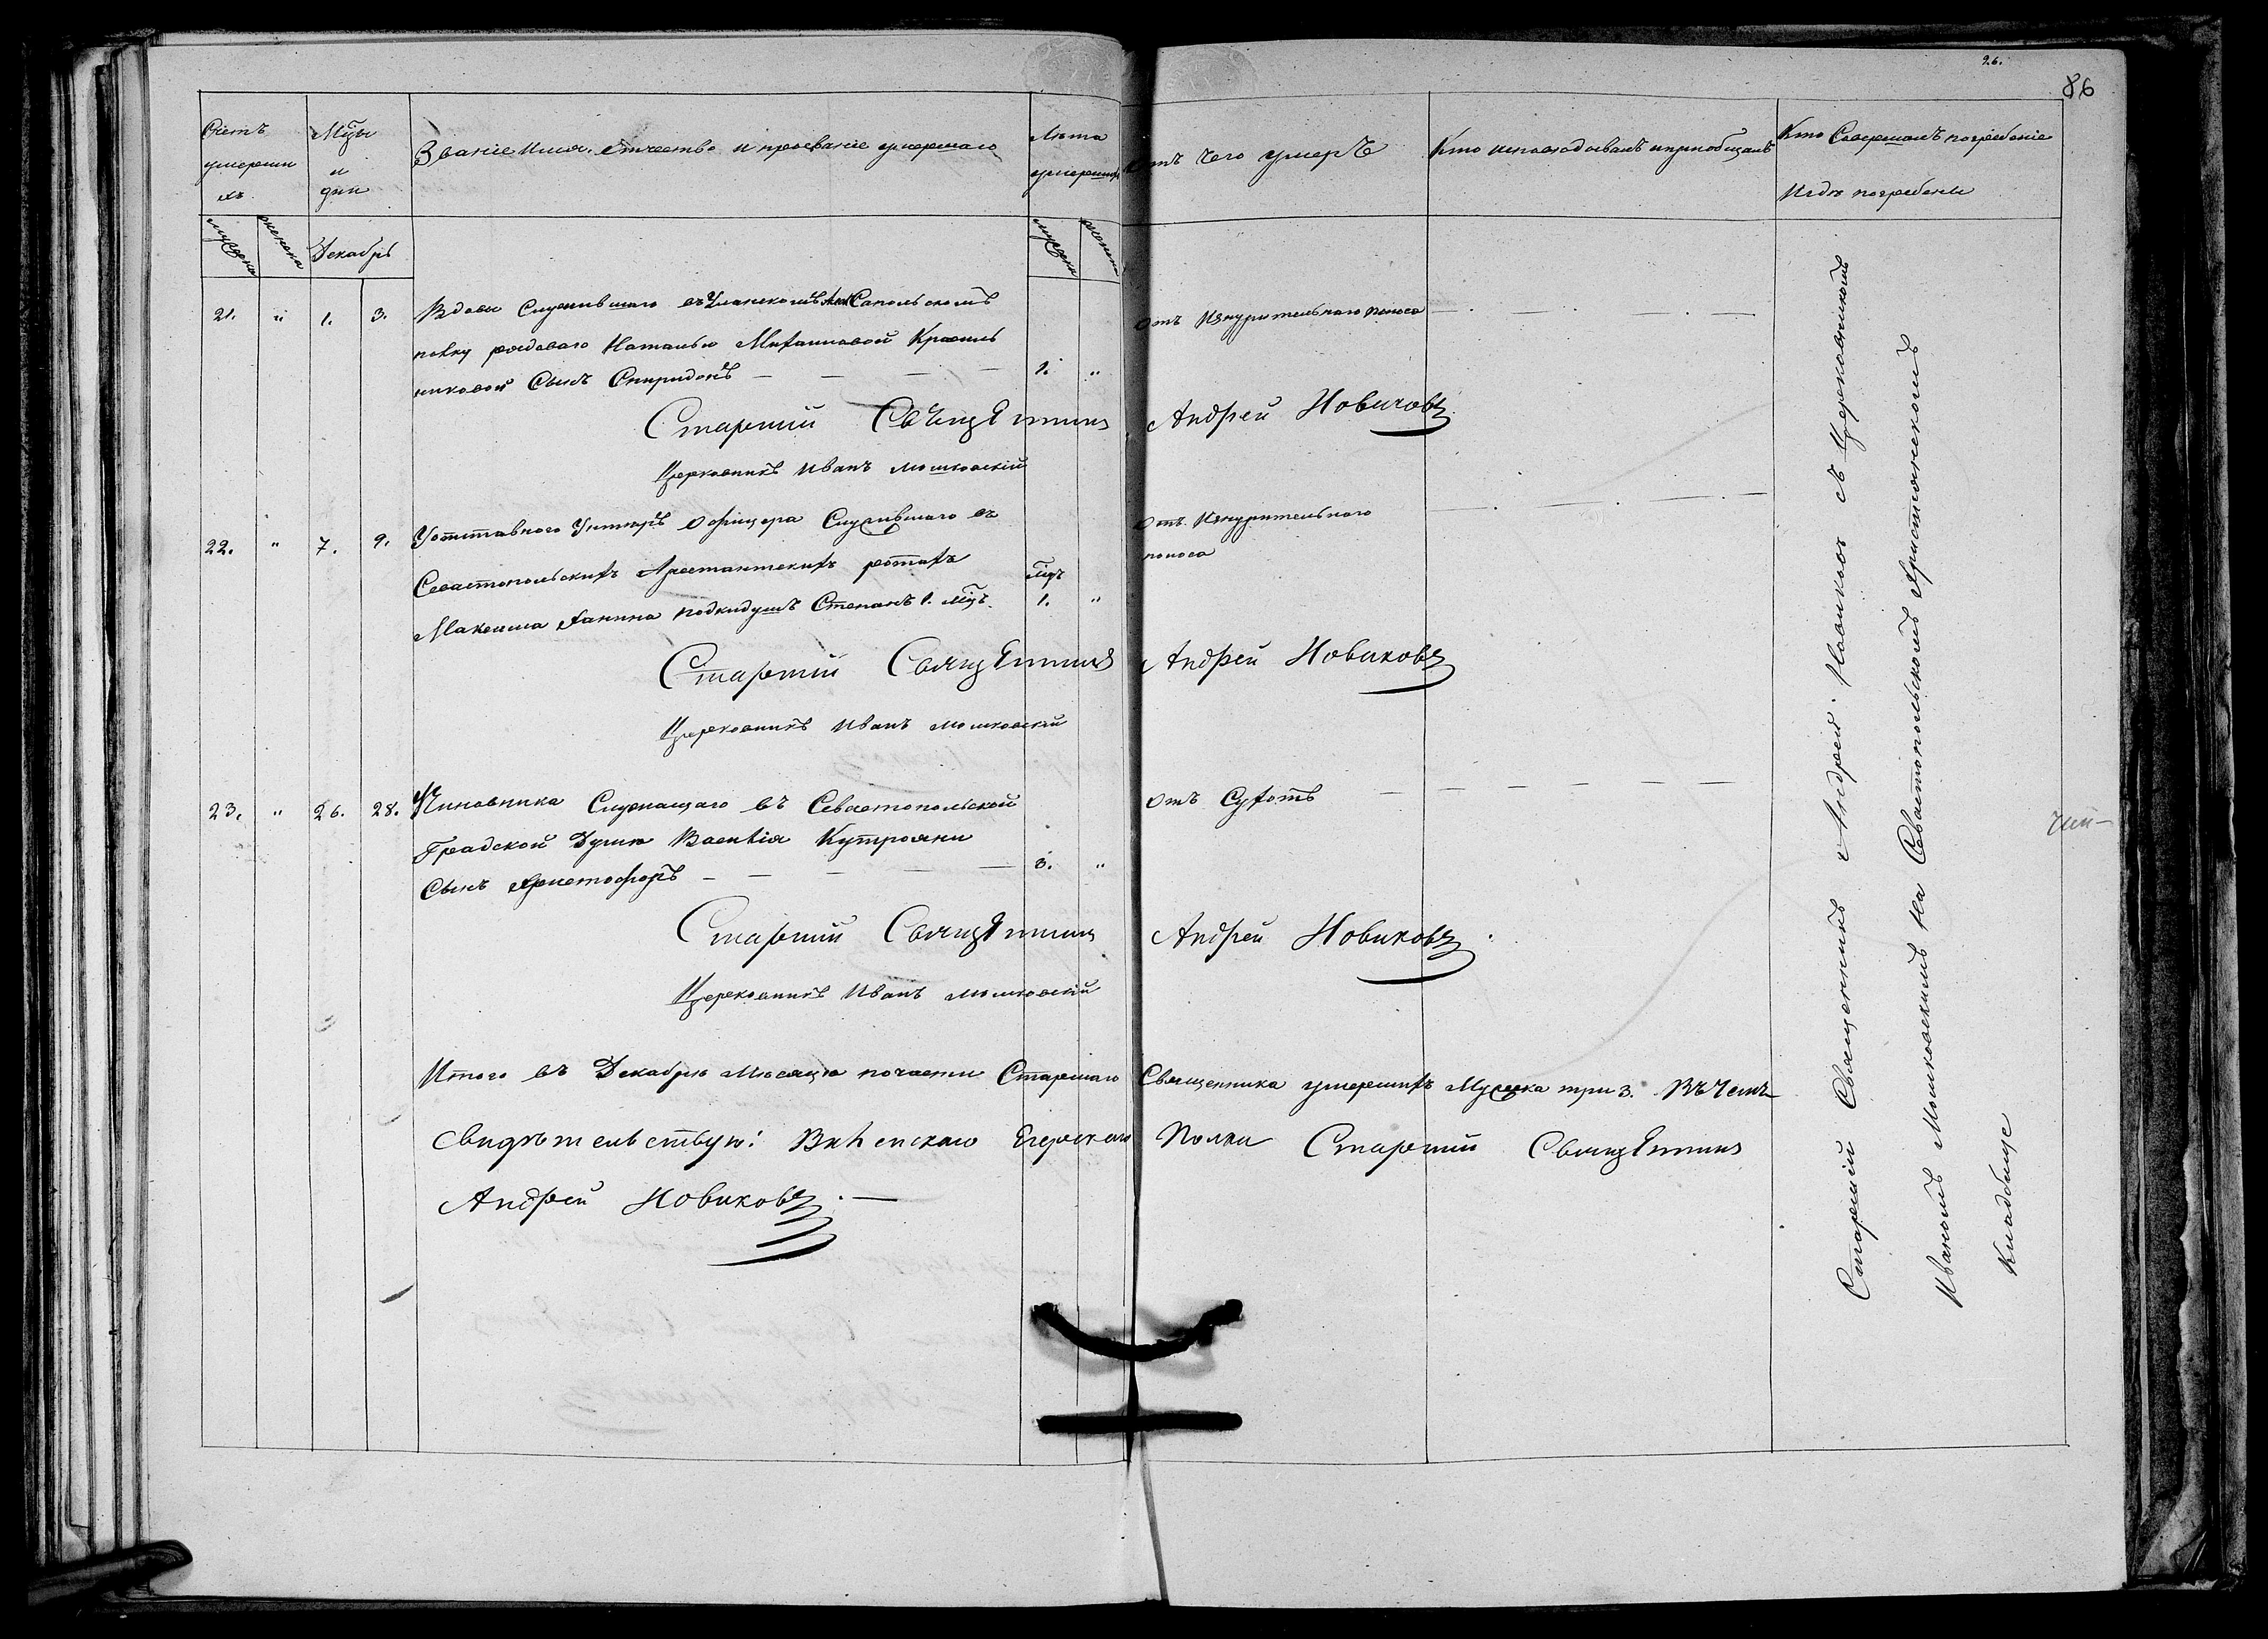 26.
86
Счетъ
умерши
хъ
Мцы
и
дни
Званіе Имя, Отчество и прозваніе умершаго
Лѣта
умершихъ
Отъ чего умеръ
Кто исповѣдывалъ и пріобщалъ
Кто Совершалъ погребеніе
И гдѣ погребены
мужеска
женска
Декабрь
мужеска
женска
21. " 1. 3. Вдовы Служившаго въ Уланскомъ Сапольскомъ
полку рядоваго Натальи Михаиловой Красиль
никовой Сынъ Спиридонъ — — — — 1. "
Отъ Изнурительнаго поноса — . — . — . —
Старшій Священникъ Андрей Новиковъ
Церковникъ Иванъ Мошковскій
22. " 7. 9. У отставного Унтеръ Офицера Служившаго въ
Севастопольскихъ Арестантскихъ ротахъ
Максима Ханина подкидышъ Степанъ 1. мцъ.
мцъ
1. "
Отъ Изнурительнаго
поноса
Старшій Священникъ Андрей Новиковъ
Церковникъ Иванъ Мошковскій
23. " 26. 28. Чиновника Служащаго въ Севастопольской
Градской Думѣ Василія Кутрояни
Сынъ Христофоръ — — — — 3. "
Отъ Сухотъ — — — — —
Старшій Священникъ Андрей Новиковъ.
Церковникъ Иванъ Мошковскій
Итого въ Декабрѣ Мѣсяцѣ по части Старшаго Священника умершихъ Мужеска три 3. Въ Чемъ
Свидѣтельствую: Виленскаго Егерскаго Полка Старшій Священникъ
Андрей Новиковъ. —
Старшій Священникъ Андрей Новиковъ съ Церковникомъ
Иваномъ Мошковскимъ На Севастопольскомъ Христіянскомъ
Кладбище